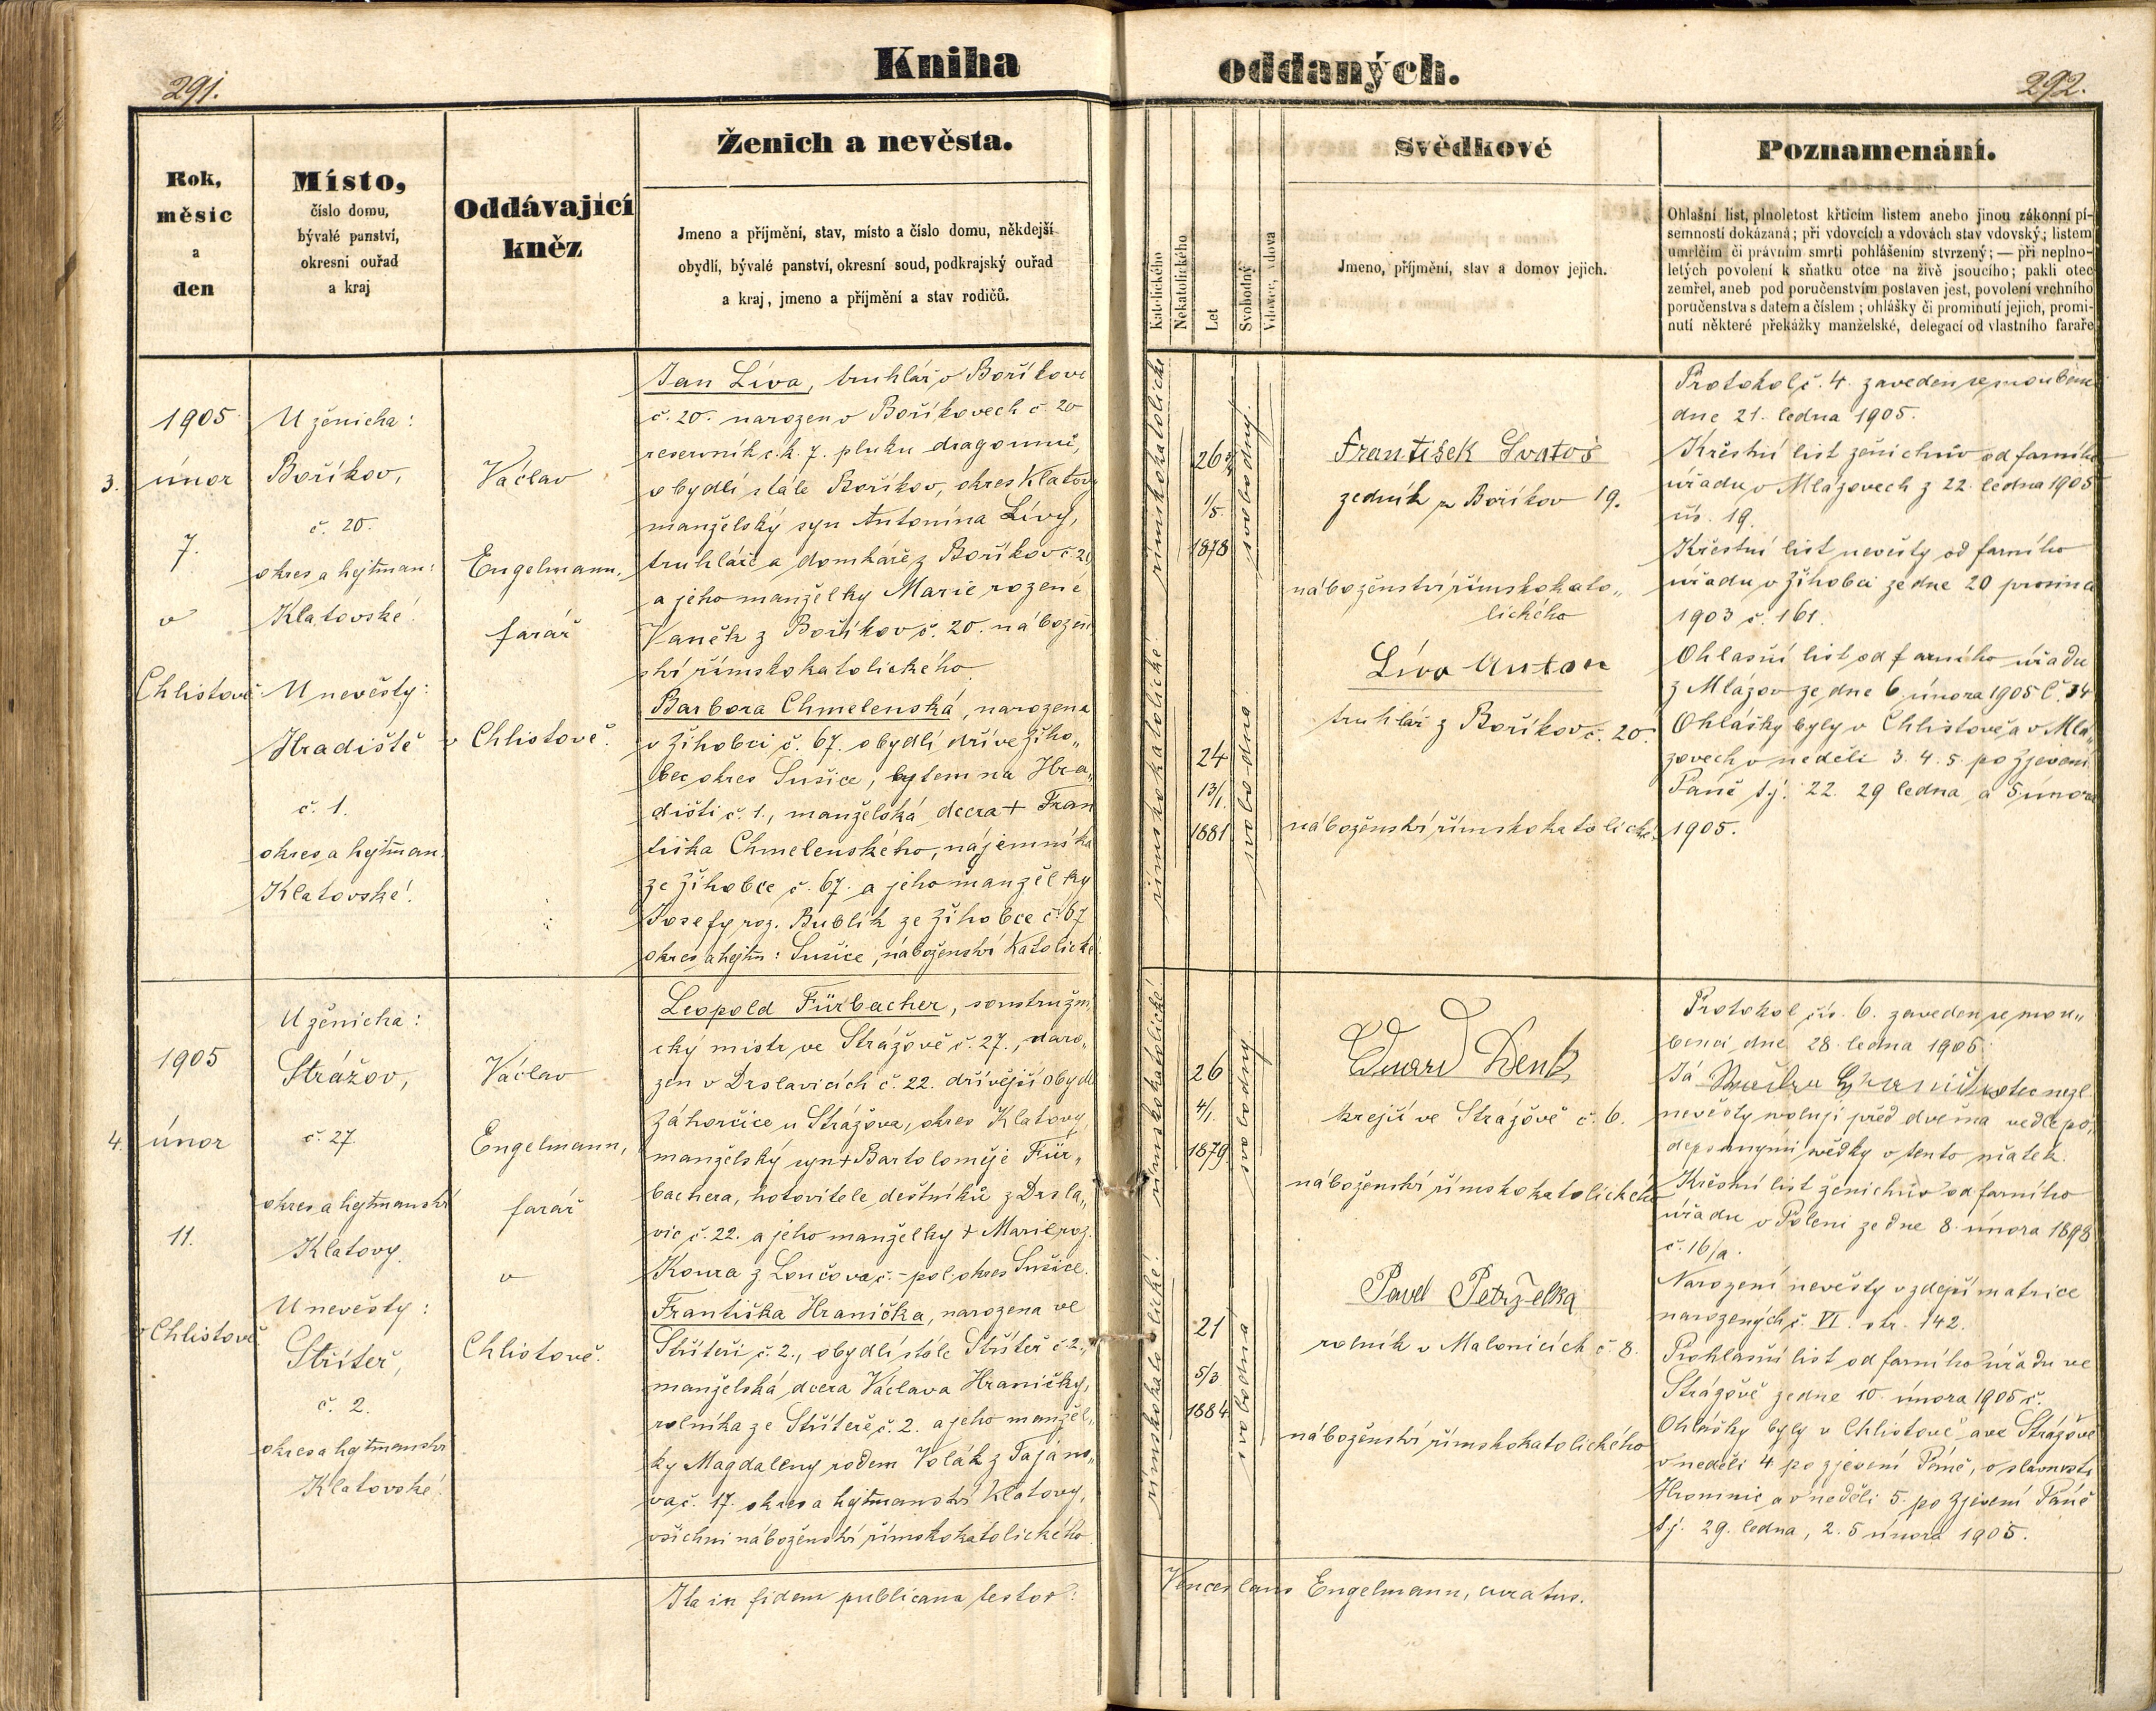 291.
Kniha oddaných.
292.
Rok,
měsíc
a
den
Místo,
číslo domu,
bývalé panství,
okresní ouřad
a kraj
Oddávající
kněz
Ženich a nevěsta.
Jmeno a příjmění, stav, místo a číslo domu, někdejší
obydlí, bývalé panství, okresní soud, podkrajský ouřad
a kraj, jmeno a příjmění a stav rodičů.
Katolického
Nekatolického
Let
Svobodný
Vdovec, vdova
Svědkové
Jmeno, příjmění, stav a domov jejich.
Poznamenání.
Ohlašní list, plnoletost křticím listem anebo jinou zákonní pí-
semností dokázaná; při vdovcích a vdovách stav vdovský; listem
umrlčím či právním smrti pohlášením stvrzený; — při neplno-
letých povolení k sňatku otce na živě jsoucího; pakli otec
zemřel, aneb pod poručenstvím postaven jest, povolení vrchního
poručenstva s datem a číslem; ohlášky či prominutí jejich, promi-
nutí některé překážky manželské, delegací od vlastního faráře
3.
1905
únor
7.
v
Chlistově
U ženicha:
Boříkov,
č. 20.
okres a hejtman:
Klatovské!
U nevěsty:
Hradiště
č. 1.
okres a hejtman.
Klatovské!
Václav
Engelmann,
farář
v Chlistově.
Jan Líva, truhlář v Boříkově
č. 20. narozen v Boříkovech č. 20
reservník c.k. 7. pluku dragounů,
obydlí stále Boříkov, okres Klatovy
manželský syn Antonína Lívy,
truhláře a domkáře z Boříkov č. 20
a jeho manželky Marie rozené
Vaněk z Boříkov č. 20. nábožen
ství římskokatolického.
Barbora Chmelenská, narozena
v Žihobci č. 67. obydlí dříve Žiho„
bec okres Sušice, bytem na Hra„
dišti č. 1., manželská dcera + Fran
tiška Chmelenského, nájemníka
ze Žihobce č. 67. a jeho manželky
Josefy roz. Bublík ze Žihobce č. 67
okres a hejtm: Sušice, náboženství katolické.
římskokatolické
římskokatolické!
26 3/4
1/5.
1878
svobodný.
24
13/1.
1881
svobodna.
František Svatoš
zedník z Boříkov 19.
náboženství římskokato„
lického
Líva Anton
truhlář z Boříkov č. 20.
náboženství římskokatolické.
Protokol č. 4. zaveden se snoubenci
dne 21. ledna 1905.
Křestní list ženichův od farního
úřadu v Mlázovech z 22. ledna 1905
čís. 19.
Křestní list nevěsty od farního
úřadu v Žihobci ze dne 20 prosince
1903 č. 161.
Ohlasní list od farního úřadu
z Mlázov ze dne 6. února 1905 Č. 34
Ohlášky byly v Chlistově a v Mlá„
zovech v neděli 3. 4. 5. po Zjevení
Páně tj. 22. 29 ledna a 5 února
1905.
4.
1905
únor
11.
v Chlistově
U ženicha:
Strážov,
č. 27.
okres a hejtmanství
Klatovy.
U nevěsty:
Střítež,
č. 2.
okres a hejtmanství
Klatovské!
Václav
Engelmann,
farář
v
Chlistově.
Leopold Fürbacher, soustružni
cký mistr ve Strážově č. 27., naro„
zen v Drslavicích č. 22. dřívější obydlí
Záhorčice u Strážova, okres Klatovy,
manželský syn + Bartoloměje Für„
bachera, hotovitele deštníků z Drsla„
vic č. 22. a jeho manželky + Marie roz.
Koura z Lončova č. – pol. okres Sušice.
Františka Hranička, narozena ve
Stříteři č. 2., obydlí stále Střítež č. 2.,
manželská dcera Václava Hraničky,
rolníka ze Stříteře č. 2. a jeho manžel„
ky Magdaleny rodem Volák z Tajano„
va č. 17. okres a hejtmanství Klatovy,
všichni náboženství římskokatolického
římskokatolické
římskokatolické!
26
4/1.
1879
svobodný
21
5/3
1884
svobodná
Eduard Denk
krejčí ve Strážově č. 6.
náboženství římskokatolického
Pavel Petrželka
rolník v Malonicích č. 8.
náboženství římskokatolického
Protokol čís. 6. zaveden se snou„
benci dne 28. ledna 1905.
Já otec nezl.
nevěsty svoluji před dvěma vedle po„
depsanými svědky v tento sňatek.
Křestní list ženichův od farního
úřadu v Poleni ze dne 8. února 1898
č. 16/a.
Narození nevěsty v zdejší matrice
narozených č. VI. str. 142.
Prohlasní list od farního úřadu ve
Strážově ze dne 10. února 1905 č.
Ohlášky byly v Chlistově a ve Strážově
v neděli 4 po zjevení Páně, o slavnosti
Hromnic a v neděli 5. po Zjevení Páně
tj. 29. ledna, 2. 5 února 1905.
Ita in fidem publicana testor: Venceslaus Engelmann, curatus.